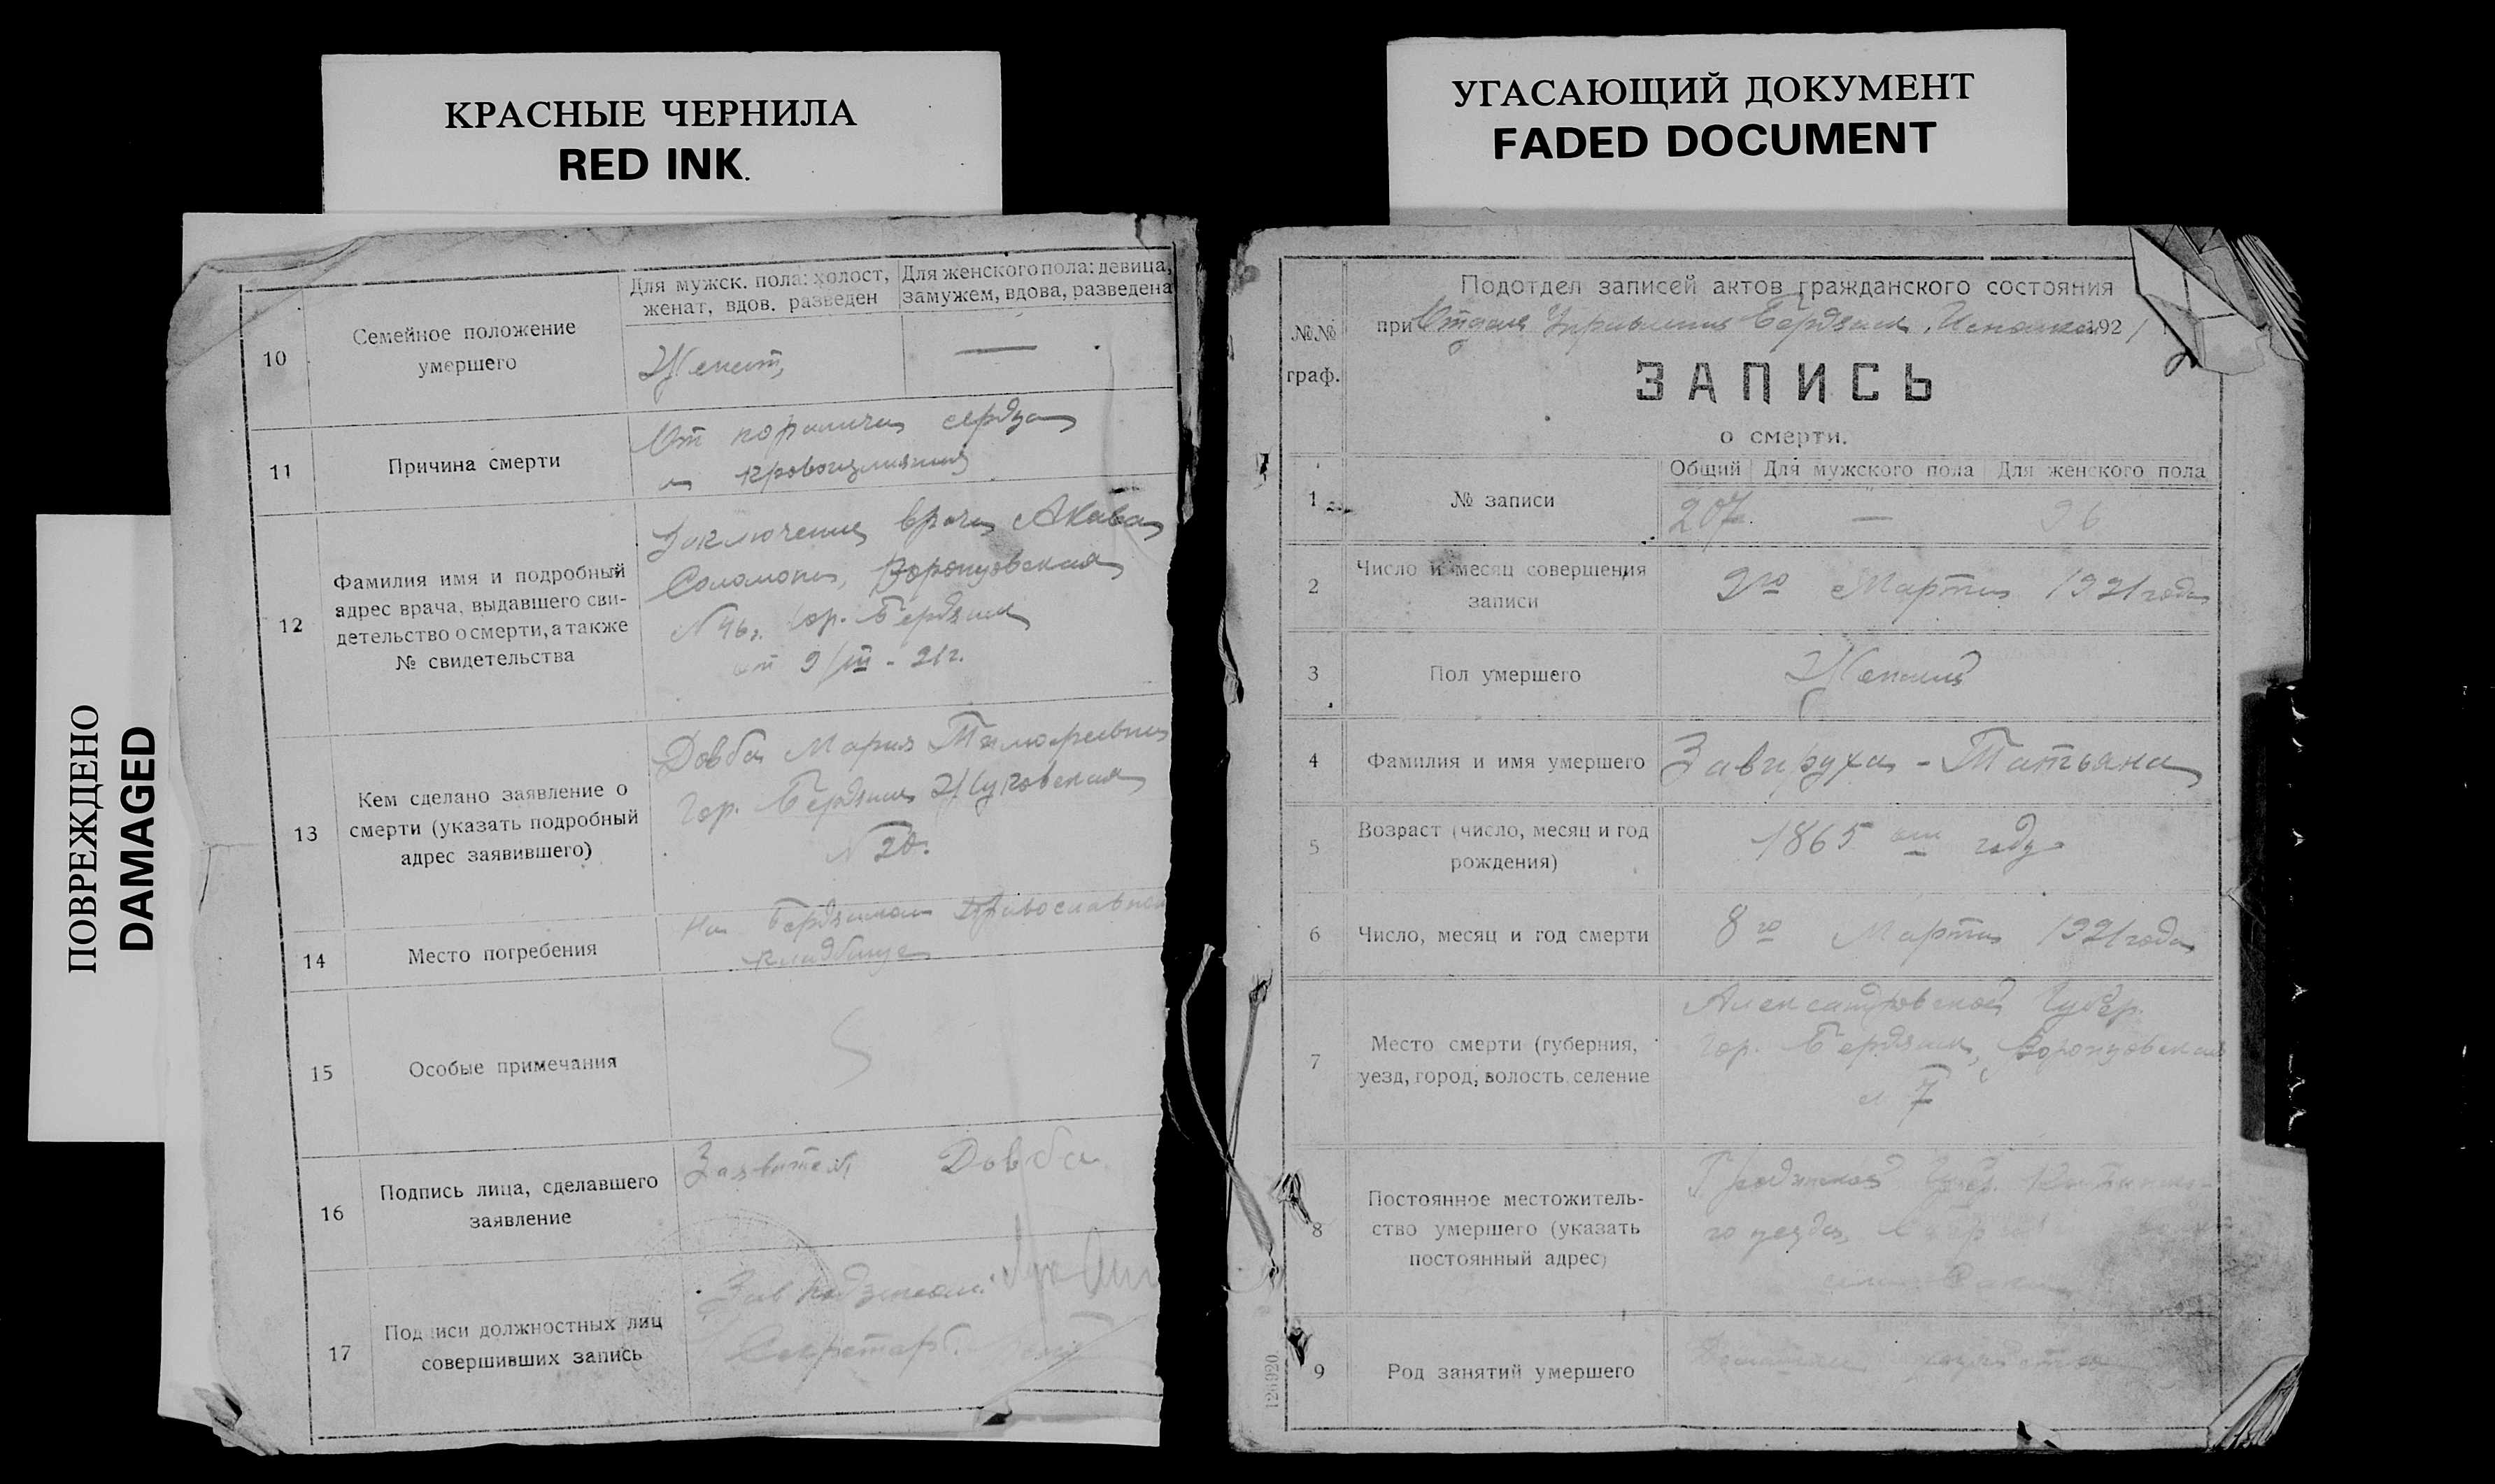 КРАСНЫЕ ЧЕРНИЛА
RED INK.
УГАСАЮЩИЙ ДОКУМЕНТ
FADED DOCUMENT
ПОВРЕЖДЕНО
DAMAGED
10
Семейное положение
умершего
Для мужск. пола: холост,
женат, вдов. разведен
Для женского пола: девица,
замужем, вдова, разведена
Женат,
—
11
Причина смерти
От паралича сердца
и кровоизлияния
12
Фамилия имя и подробный
адрес врача, выдавшего сви-
детельство о смерти, а также
№ свидетельства
Заключение врача Акава
Соломона, Воронцовская
гор. Бердянск
от 9/III - 21г.
13
Кем сделано заявление о
смерти (указать подробный
адрес заявившего)
Довба Мария Тимофеевна
Гор. Бердянск Жуковская
14
Место погребения
На Бердянском Православном
кладбище
15
Особые примечания
16
Подпись лица, сделавшего
заявление
Заявитель Довба
17
Подписи должностных лиц
совершивших запись
Зав
Секретарь
№№
граф.
Подотдел записей актов гражданского состояния
при Отделе Управления Бердянск. Исполкома 1921
ЗАПИСЬ
о смерти.
1
№ записи
Общий Для мужского пола Для женского пола
207. — 96
2
Число и месяц совершения
записи
9го Марта 1921 года
3
Пол умершего
Женский
4
Фамилия и имя умершего
Завируха - Татьяна
5
Возраст (число, месяц и год
рождения)
1865 году
6
Число, месяц и год смерти
8го Марта 1921 года
7
Место смерти (губерния,
уезд, город, волость, селение
Александровской Губер.
гор. Бердянск, Воронцовская
7
8
Постоянное местожитель-
ство умершего (указать
постоянный адрес)
Гродненской Губ.
го уезда,
9
Род занятий умершего
126920